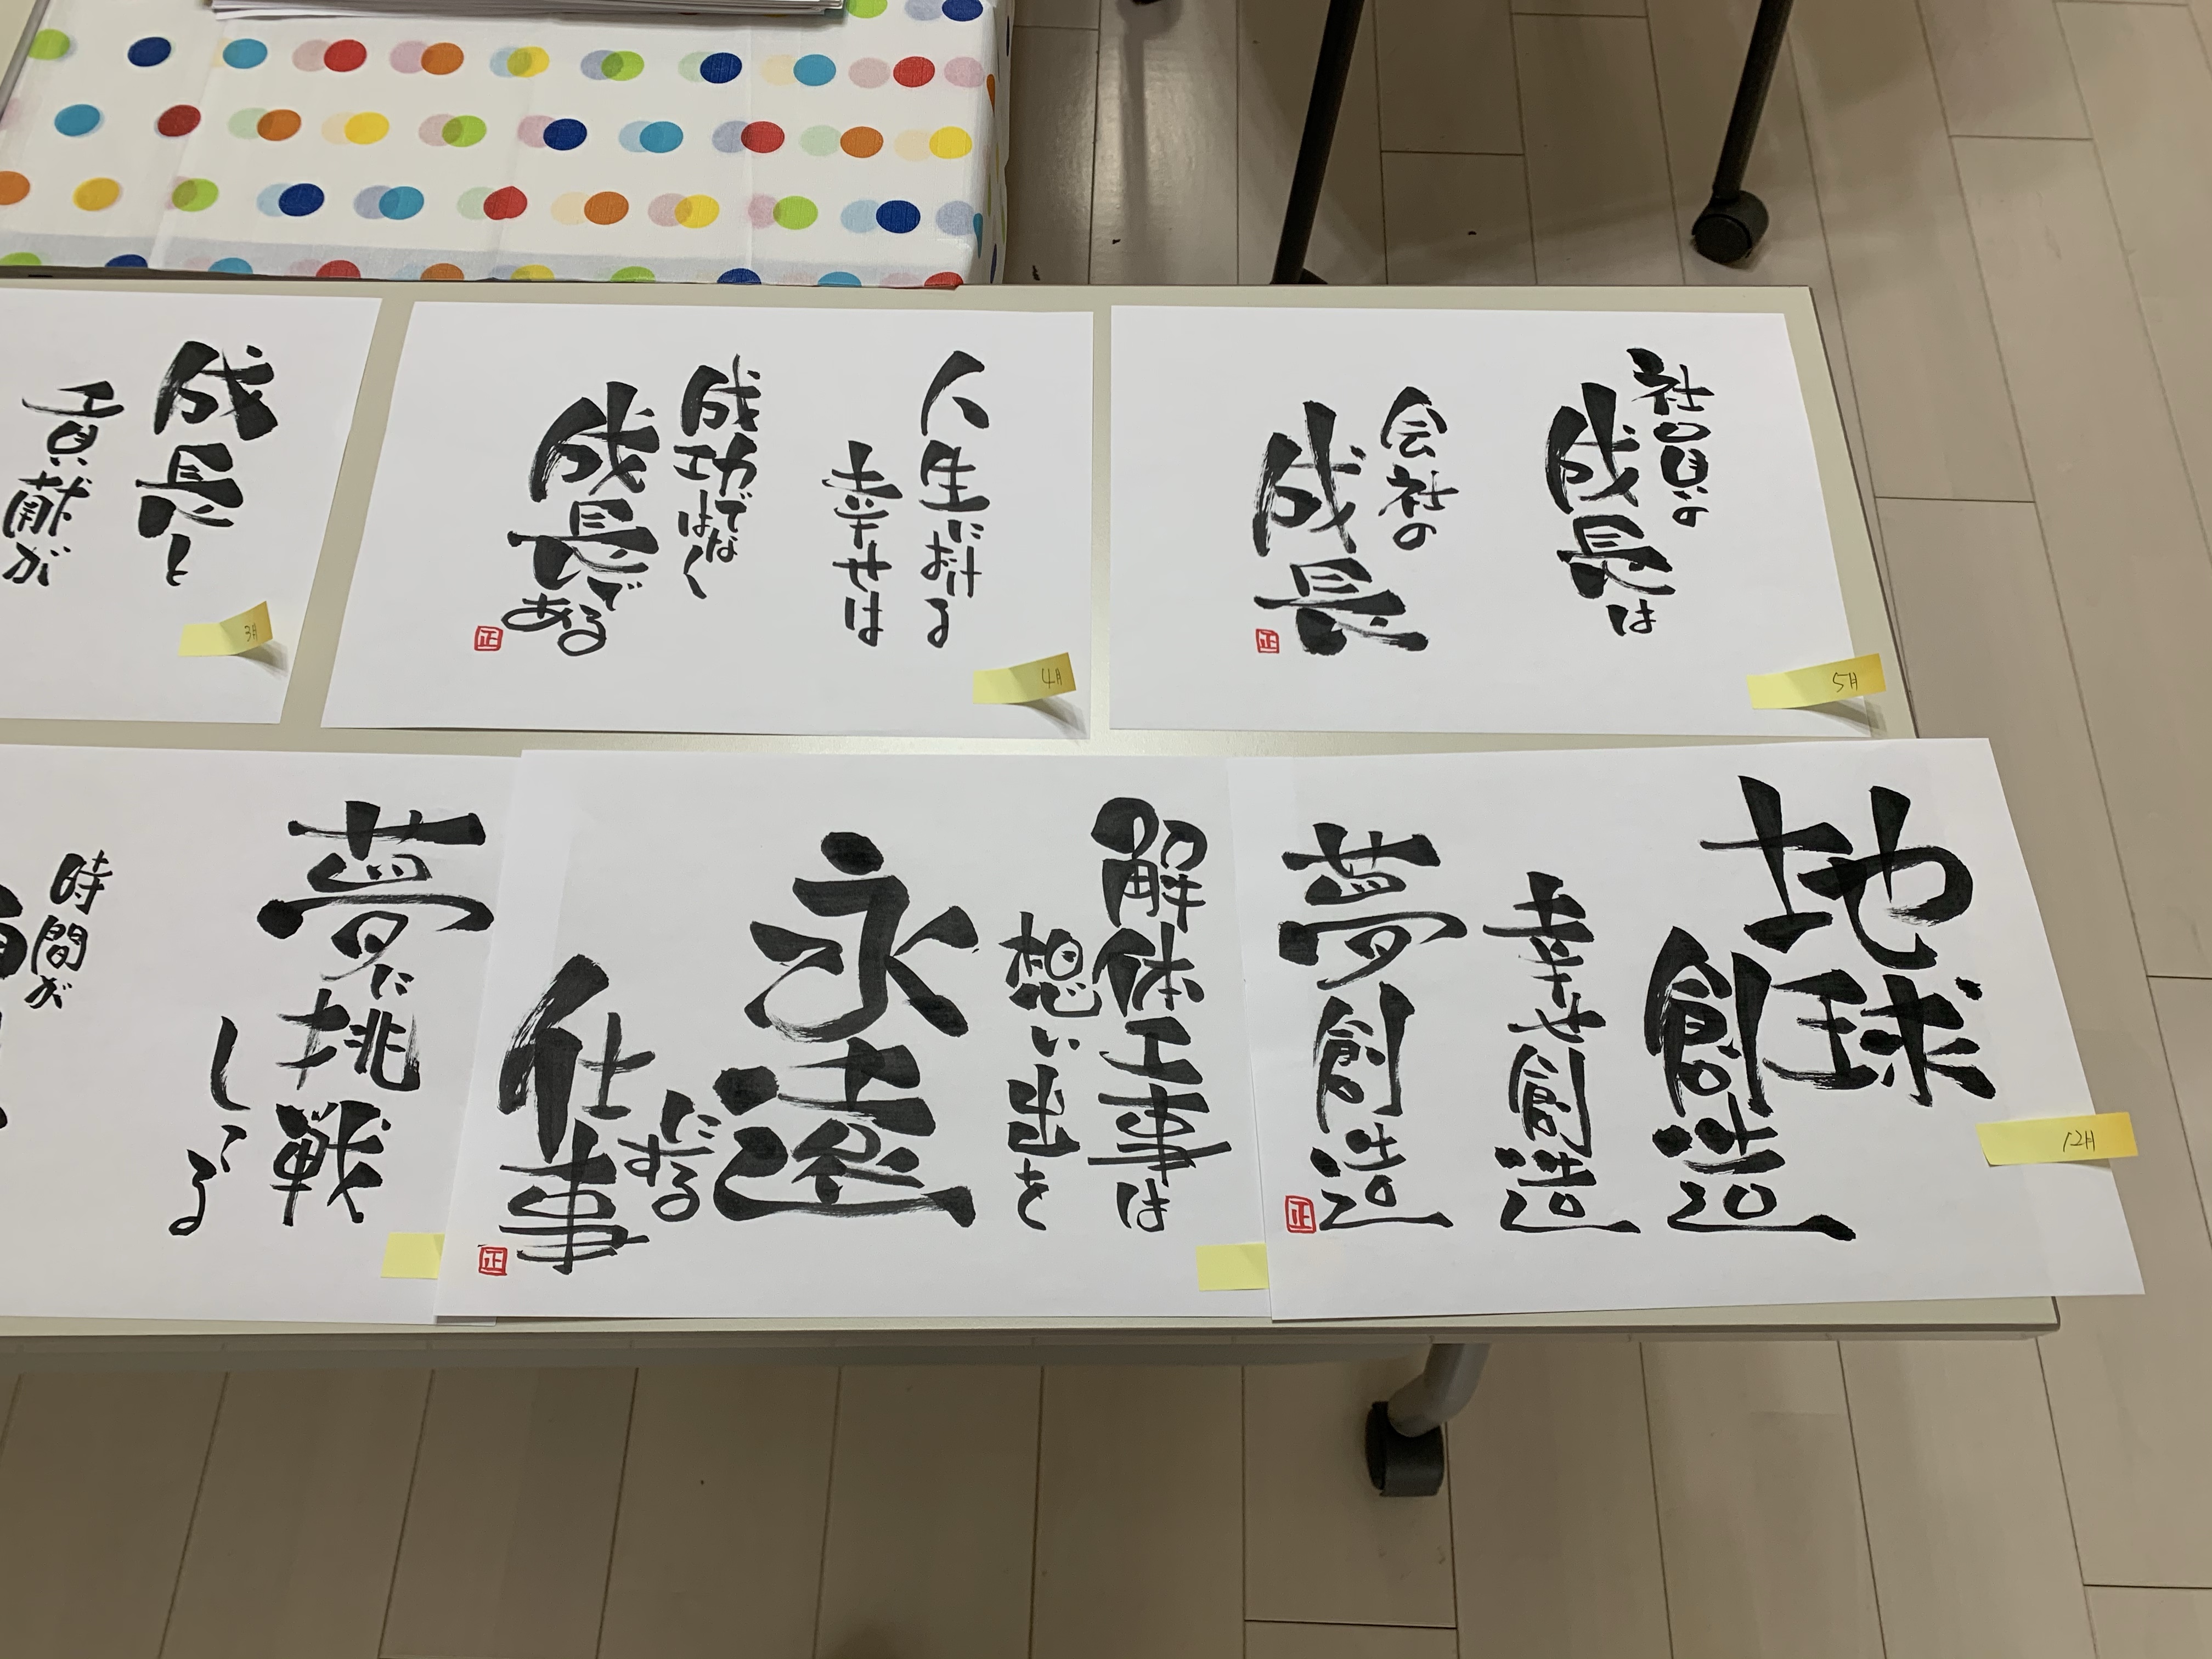 社員の
成長は
会社の
成長
正
5月
人生における
幸せは
成功ではなく
成長である
正
4月
成長と
貢献が
3月
地球
創造
幸せ創造
夢創造
正
12月
解体工事は
想い出を
永遠
にする
仕事
正
夢に挑戦
してる
時間が